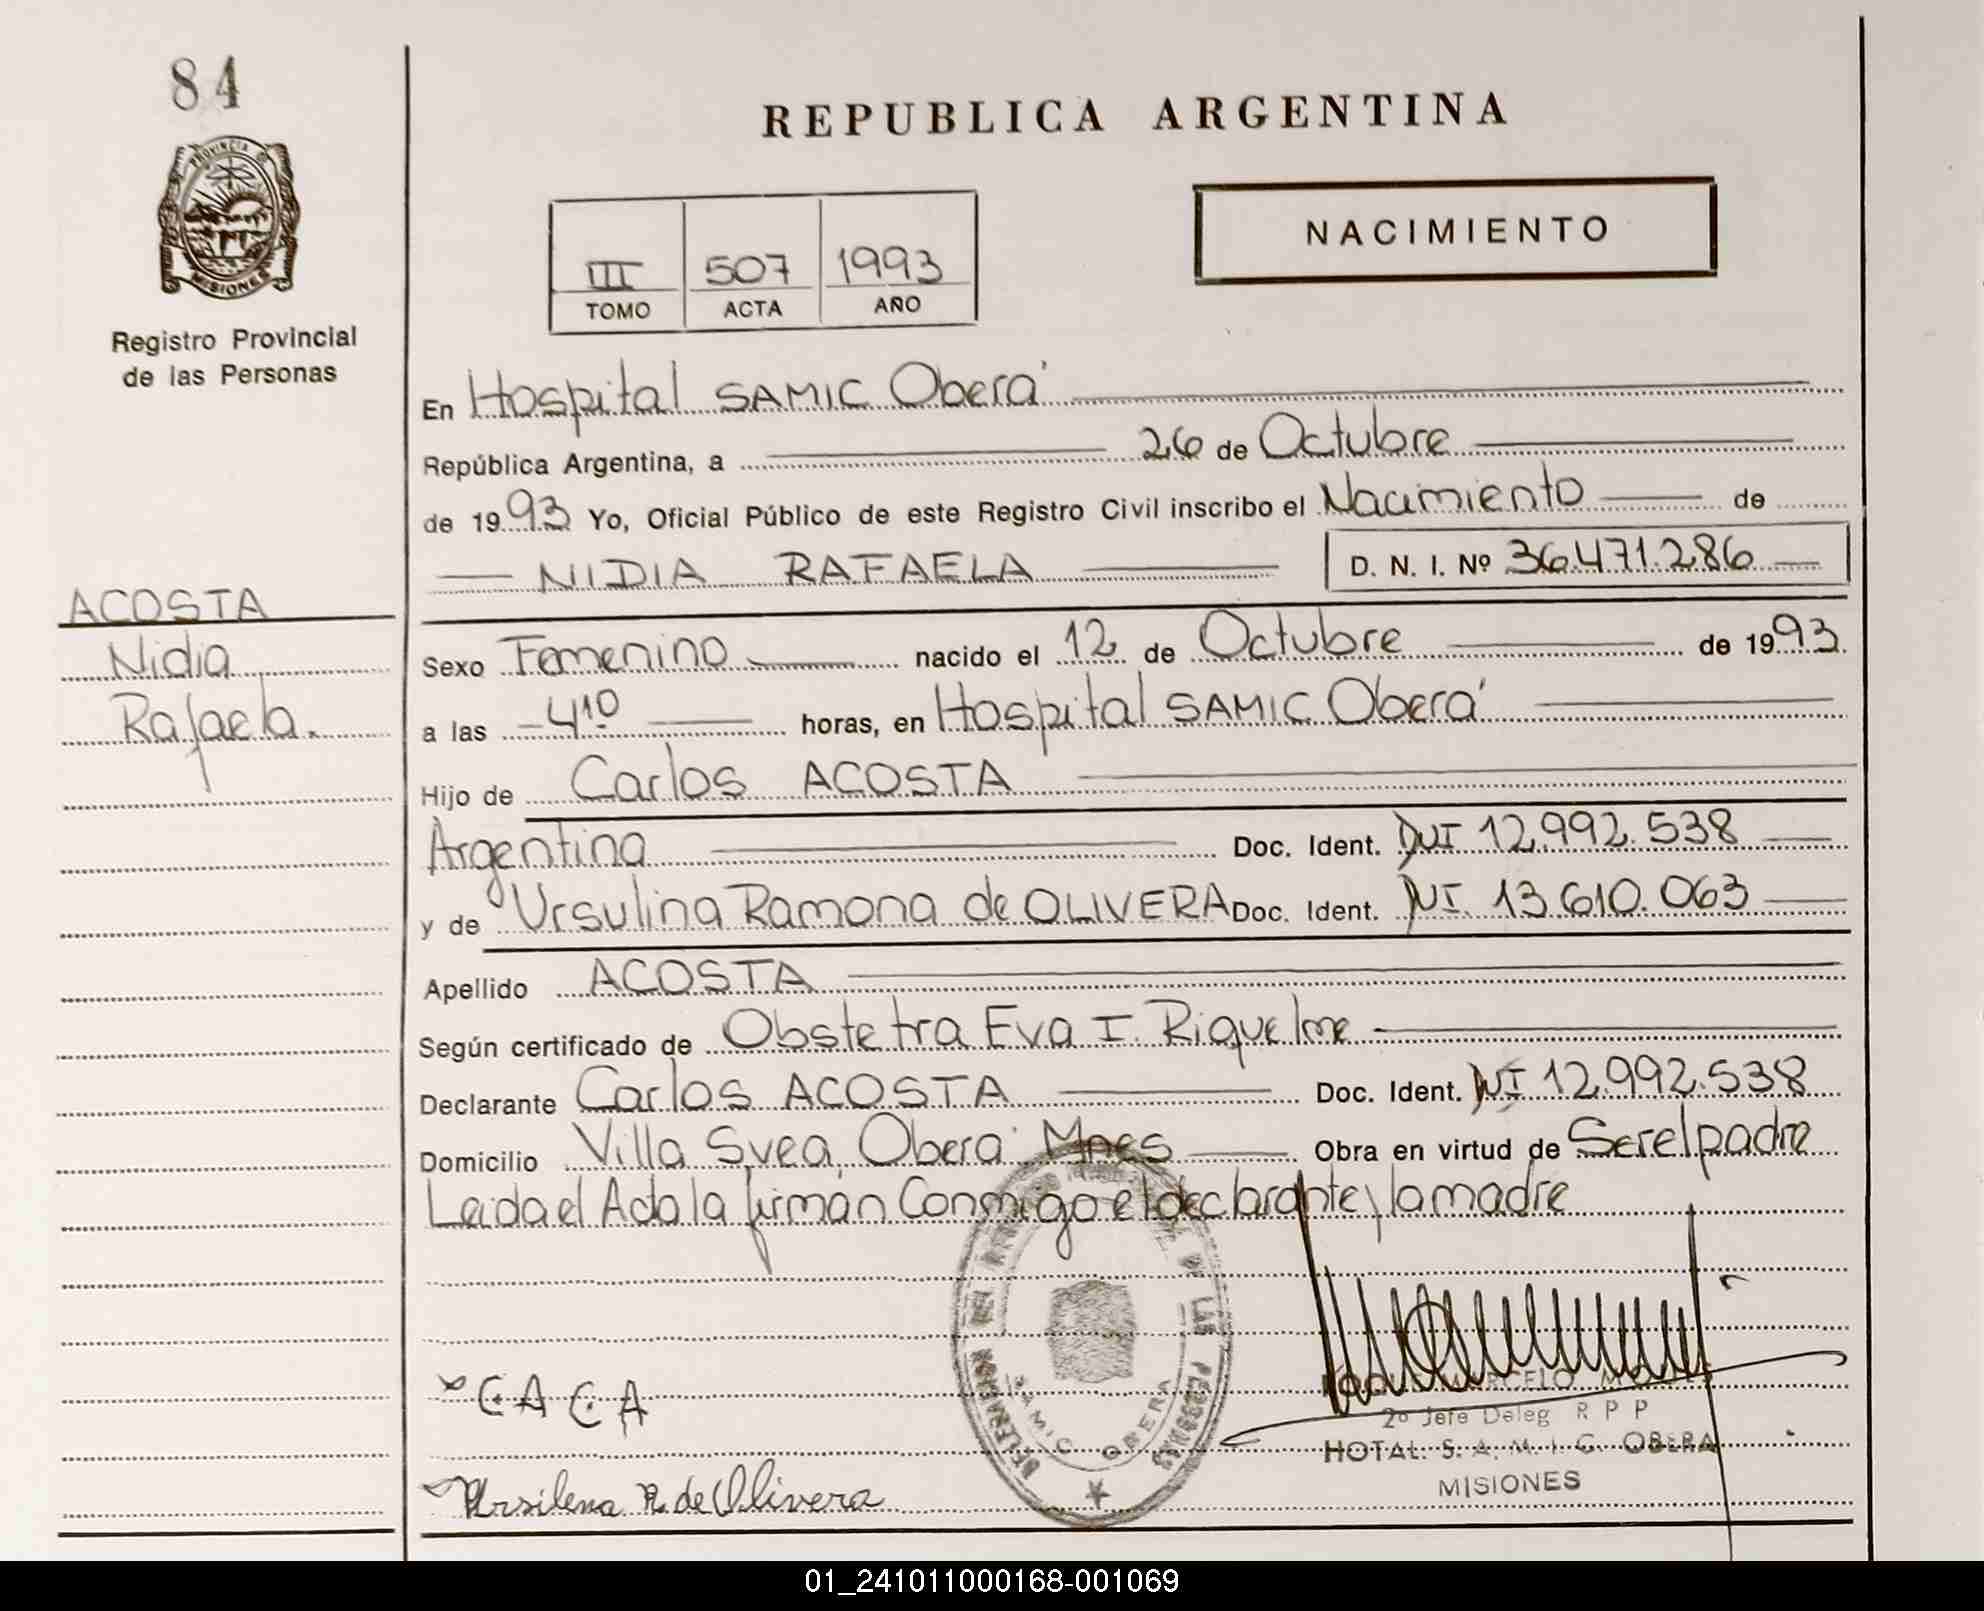 84
REPUBLICA ARGENTINA
PROVINCIA DE MISIONES
NACIMIENTO
III 507 1993
TOMO ACTA AÑO
Registro Provincial
de las Personas
En Hospital SAMIC Oberá
República Argentina, a 26 de Octubre
de 1993 Yo, Oficial Público de este Registro Civil inscribo el Nacimiento de
NIDIA RAFAELA D. N. I. Nº 36.471.286
ACOSTA
Nidia
Rafaela.
Sexo Femenino nacido el 12 de Octubre de 1993
a las 4¹⁰ horas, en Hospital SAMIC Oberá
Hijo de Carlos ACOSTA
Argentina Doc. Ident. DNI 12.992.538
y de Ursulina Ramona de OLIVERA Doc. Ident. DNI 13.610.063
Apellido ACOSTA
Según certificado de Obstetra Eva I. Riquelme
Declarante Carlos ACOSTA Doc. Ident. DNI 12.992.538
Domicilio Villa Svea Oberá Mnes Obra en virtud de Ser el padre
Leida el Acta la firmán Conmigo el declarante y la madre
DE LAS PERSONAS
SAMIC OBERA
CACA
2º Jefe Deleg R P P
HOTAL. S. A. M. I. C. OBERA
MISIONES
R. de Olivera
01_241011000168-001069